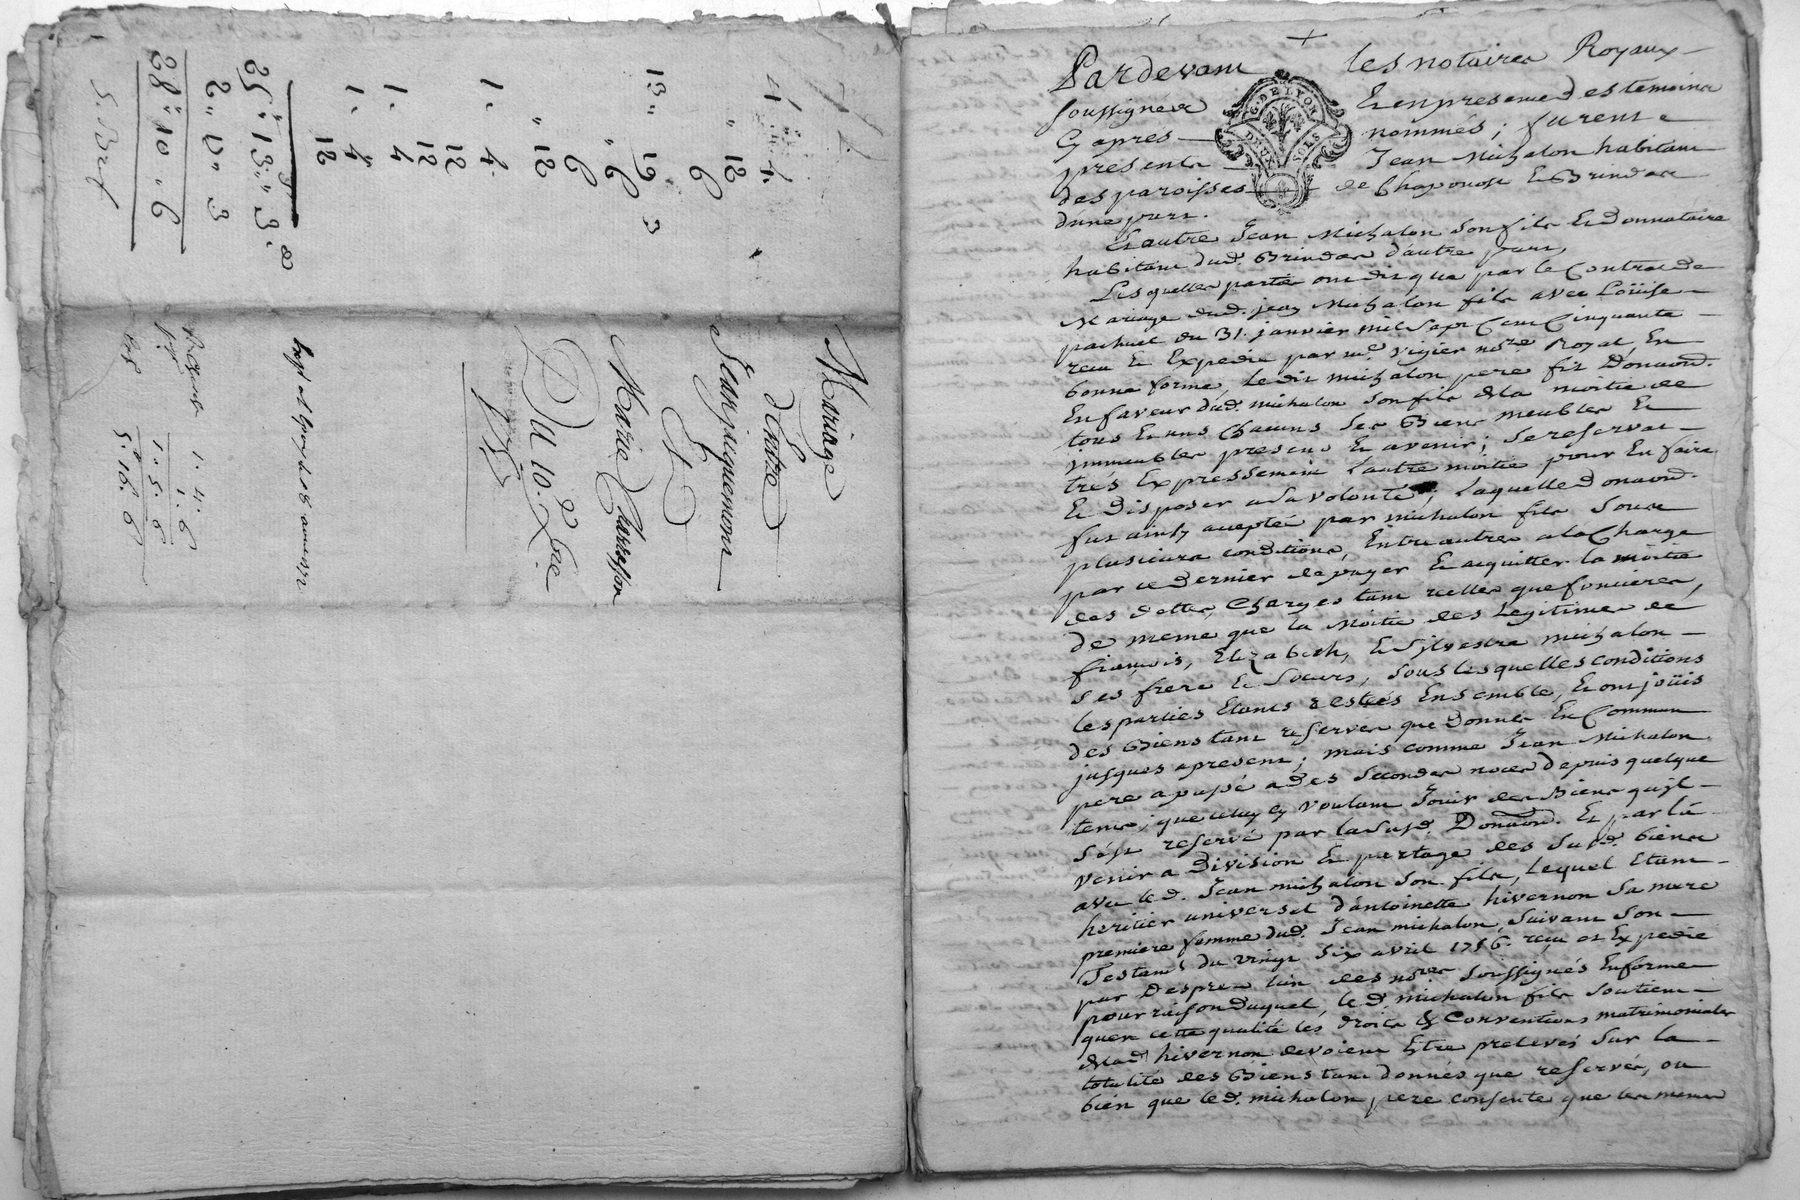 4. 4.
" 12
6
13 " 19 3
" 6
6
" 12
1. 4
12
12
1. 4
1. 4
12
25 " 13 " 3
2 " 10 " 3
28 " 10 " 6
Mariage
d'Entre
Jean jacquemont
Et
Marie
Du 10.
1. 4. 6
1. 5. 6
5. 16. 6
Pardevant les notaires Royaux
soussignés Et en presence des temoins
Cy apres nommés; furent
presents Jean Michalon habitant
des paroisses de Chaponost Et Brindas
d'une part.
G. DE LYON
DEUX SOLS
Et autre Jean Michalon son fils Et Donnataire
habitant dud. Brindas d'autre part,
Lesquelles parties ont dit que par le Contrat de
Mariage dud. jean Michalon fils avec Loüise
pachuet du 31. janvier mil sept Cent Cinquante
recu Et Expedié par me. vigier nore. Royal En
bonne forme, Ledit michalon pere fit Donaon.
En faveur dud. michalon son fils de la moitié de
tous Et uns Chacuns ses Biens meubles Et
immeubles presens Et avenir; se reservat
trés Expressement l'autre moitié pour En faire
Et Disposer a sa volonté; Laquelle Donaon.
fut ainsy acceptée par michalon fils sous
plusieurs conditions, Entre autres a la Charge
par ce Dernier de payer Et acquitter la moitié
des dettes, Charges tant reelles que foncieres,
de meme que la Moitié des Legitimes de
françois, Elizabeth, Et Silvestre michalon
ses frere Et Soeurs, sous lesquelles conditions
les parties Etants restées Ensemble, Et ont joüis
des Biens tant reservés que Donnés En Commun
jusques apresent; mais comme Jean Michalon
pere a passé a des secondes noces depuis quelque
tems; que celuy cy voulant Jouir des Biens qu'il
s'est reservé par la susd. Donaon. Et par là
venir a Division Et partage des susd. biens
avec led. Jean michalon son fils, Lequel Etant
heritier universel d'antoinette hivernon sa mere
premiere femme dud. Jean michalon, suivant son
Testamt. du vingt six avril 1756. reçu et Expedié
par Desprez l'un des nores. soussignés En forme
pour raison duquel, led. michalon fils soutient
qu'en cette qualité les droits & Conventions matrimoniales
de lad. hivernon devoient Etre prelevés sur la
totalité des Biens tant donnés que reservés, ou
bien que led. michalon pere consente que les memes